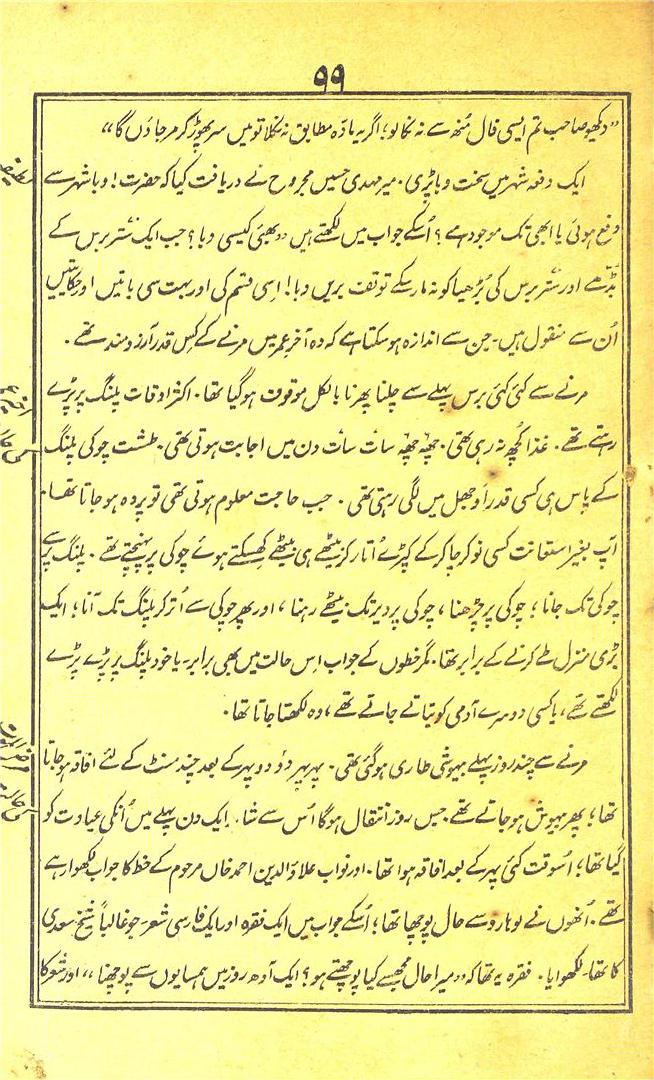 ۹۹
"دیکھو صاحب تم ایسی فال مُنھ سے نہ نکالو؛ اگر یہ مادّہ مطابق نہ نکلا تو میں سر پھوڑ کر مر جاؤں گا"
ایک دفعہ شہر میں سخت وبا پڑی۔ میر مہدی حسین مجروح نے دریافت کیا کہ حضرت! وبا شہر سے
دفع ہوئی یا ابھی تک موجود ہے؟ اُسکے جواب میں لکھتے ہیں "بھئی کیسی وبا؟ جب ایک ستّر برس کے
بُڈھے اور ستّر برس کی بُڑھیا کو نہ مار سکے تو تف بریں وبا! اِسی قسم کی اور بہت سی باتیں اور حکایتیں
اُن سے منقول ہیں۔ جن سے اندازہ ہو سکتا ہے کہ وہ آخر عمر میں مرنے کے کِس قدر آرزومند تھے۔
مرنے سے کئی کئی برس پہلے سے چلنا پھرنا بالکل موقوف ہو گیا تھا۔ اکثر اوقات پلنگ پر پڑے
رہتے تھے۔ غذا کُچھ نہ رہی تھی۔ چھ چھ سات سات دن میں اجابت ہوتی تھی۔ طشت چوکی پلنگ
کے پاس ہی کسی قدر اوجھل میں لگی رہتی تھی۔ جب حاجت معلوم ہوتی تھی تو پردہ ہو جاتا تھا۔
آپ بغیر استعانت کسی نوکر چاکر کے کپڑے اُتار کر بیٹھے ہی بیٹھے کھِسکتے ہوئے چوکی پر پہنچتے تھے۔ پلنگ پر سے
چوکی تک جانا؛ چوکی پر چڑھنا، چوکی پر دیر تک بیٹھے رہنا، اور پھر چوکی سے اُتر کر پلنگ تک آنا؛ ایک
بڑی منزل طے کرنے کے برابر تھا۔ مگر خطوں کے جواب اِس حالت میں بھی برابر۔ یا خود پلنگ پر پڑے پڑے
لکھتے تھے، یا کسی دوسرے آدمی کو بتاتے جاتے تھے، وہ لکھتا جاتا تھا۔
مرنے سے چند روز پہلے بیہوشی طاری ہو گئی تھی۔ پہر پہر دو دو پہر کے بعد چند منٹ کے لئے افاقہ ہو جاتا
تھا؛ پھر بیہوش ہو جاتے تھے۔ جس روز انتقال ہوگا اُس سے شاید ایک دن پہلے میں اُنکی عیادت کو
گیا تھا؛ اُسوقت کئی پہر کے بعد افاقہ ہوا تھا۔ اور نواب علاؤالدین احمد خاں مرحوم کے خط کا جواب لکھوا رہے
تھے۔ اُنھوں نے لوہارو سے حال پوچھا تھا؛ اُسکے جواب میں ایک فقرہ اور ایک فارسی شعر۔ جو غالباً شیخ سعدی
کا تھا۔ لکھوایا۔ فقرہ یہ تھا کہ "میرا حال مجھسے کیا پوچھتے ہو؟ ایک آدھ روز میں ہمسایوں سے پوچھنا" اور شعر کا